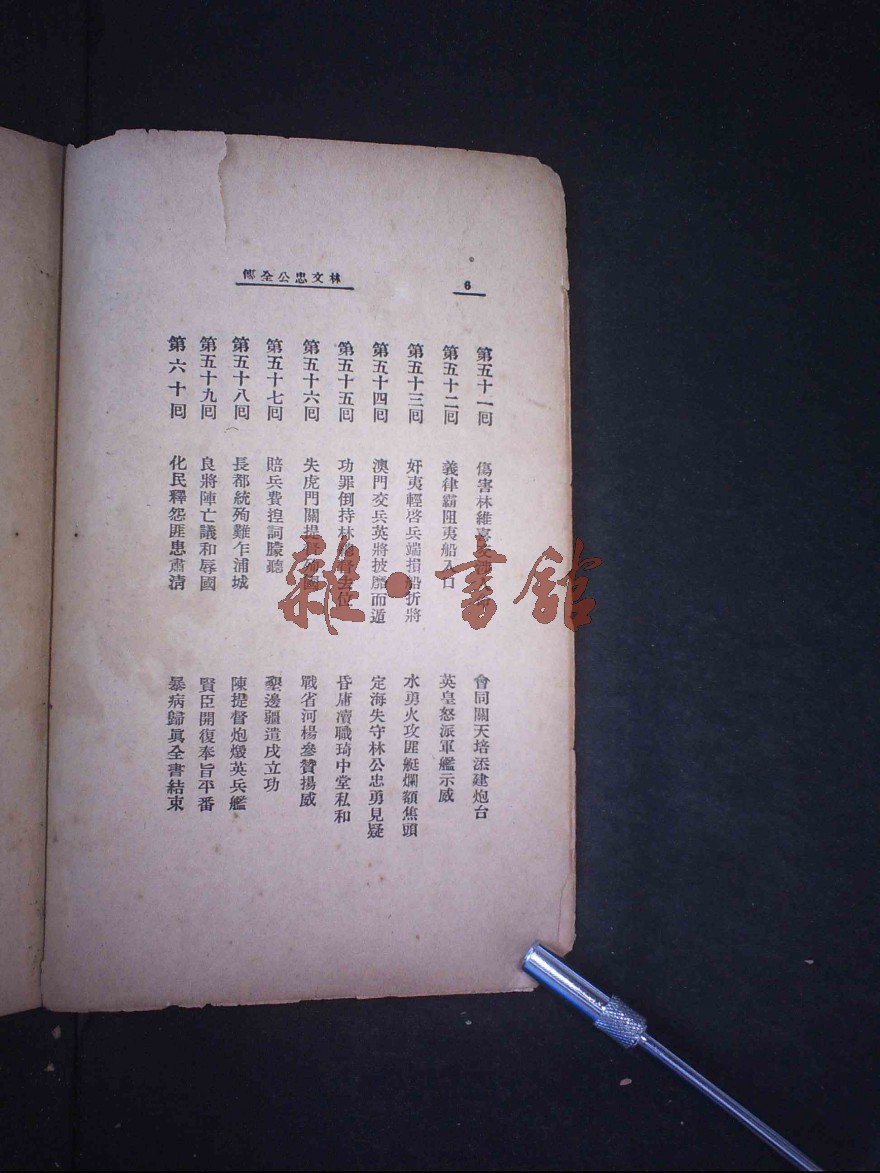 6
林文忠公全傳
第五十一囘 傷害林維喜 會同關天培添建炮台
第五十二囘 義律霸阻夷船入口 英皇怒派軍艦示威
第五十三囘 奸夷輕啓兵端損船折將 水勇火攻匪艇爛額焦頭
第五十四囘 澳門交兵英將披靡而遁 定海失守林公忠勇見疑
第五十五囘 功罪倒持林總督去位 昏庸瀆職琦中堂私和
第五十六囘 失虎門關提督殉國 戰省河楊參贊揚威
第五十七囘 賠兵費揑詞朦聽 墾邊疆遣戍立功
第五十八囘 長都統殉難乍浦城 陳提督炮燬英兵艦
第五十九囘 良將陣亡議和辱國 賢臣開復奉旨平番
第六十囘 化民釋怨匪患肅清 暴病歸眞全書結束
雜·書館